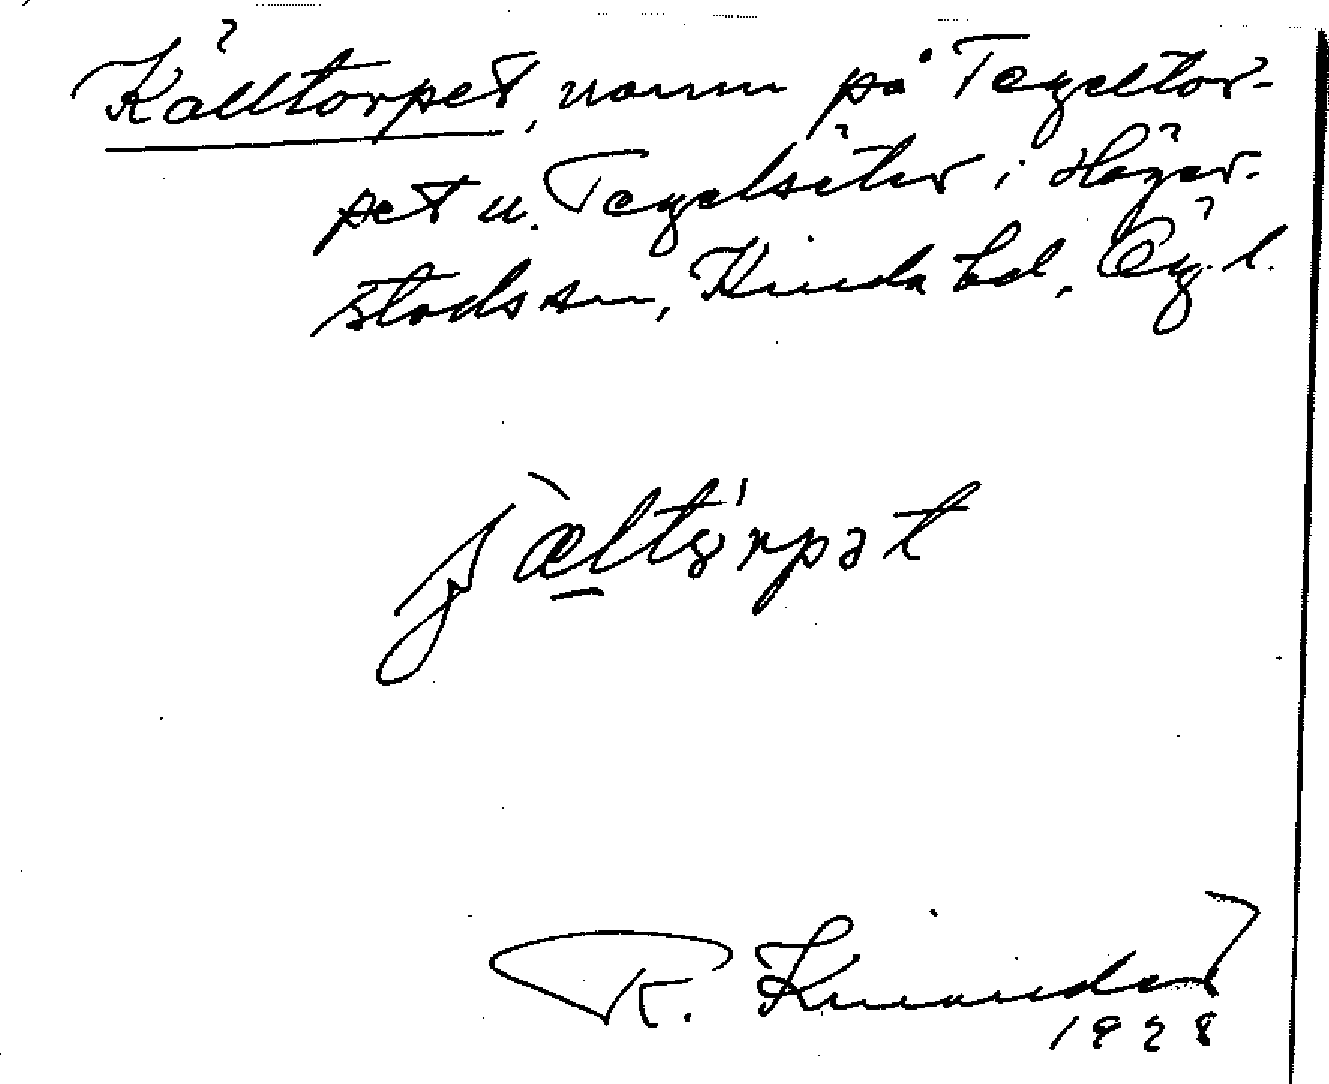 Källtorpet, namn på Tegeltor-
pet u. Tegelsäter i Häger-
stads sn, Kinda hd, Ög. l.
jæ̀ltɷ'rpət
R. Kinander
1928